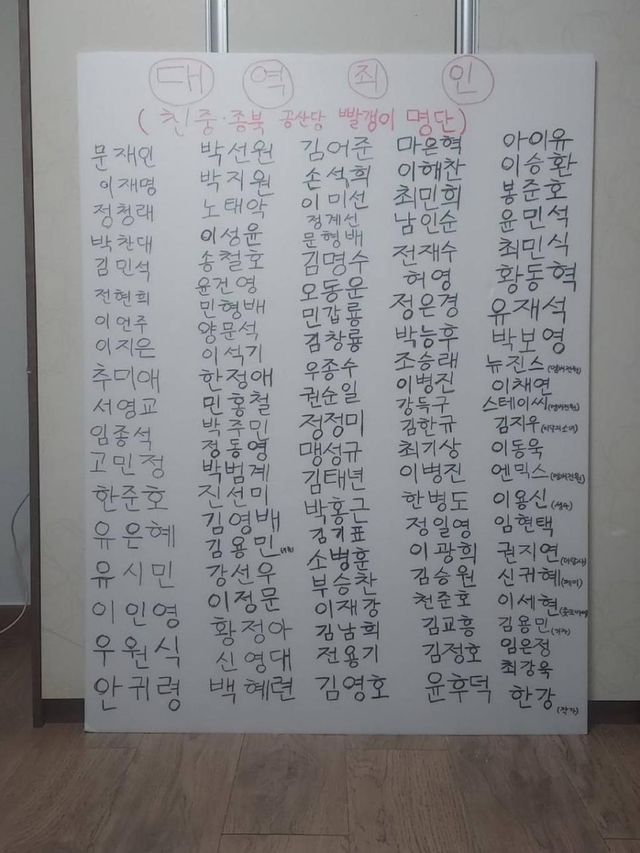 대역죄인
(친중·종북 공산당 빨갱이 명단)
문재인
이재명
정청래
박찬대
김민석
전현희
이언주
이지은
추미애
서영교
임종석
고민정
한준호
유은혜
유시민
이인영
우원식
안귀령
박선원
박지원
노태악
이성윤
송철호
윤건영
민형배
양문석
이석기
한정애
민홍철
박주민
정동영
박범계
진선미
김영배
김용민
강선우
이정문
황정아
신영대
백혜련
김어준
손석희
이미선
정계선
문형배
김명수
오동운
민갑룡
김창룡
우종수
권순일
정정미
맹성규
김태년
박홍근
김기표
소병훈
부승찬
이재강
김남희
전용기
김영호
마은혁
이해찬
최민희
남인순
전재수
허영
정은경
박능후
조승래
이병진
강득구
김한규
최기상
이병진
한병도
정일영
이광희
김승원
천준호
김교흥
김정호
윤후덕
아이유
이승환
봉준호
윤민석
최민식
황동혁
유재석
박보영
뉴진스(멤버전원)
이채연
스테이씨(멤버전원)
김지우
이동욱
엔믹스(멤버전원)
이용신(성우)
임현택
권지연
신귀혜
이세현
김용민
임은정
최강욱
한강(작가)